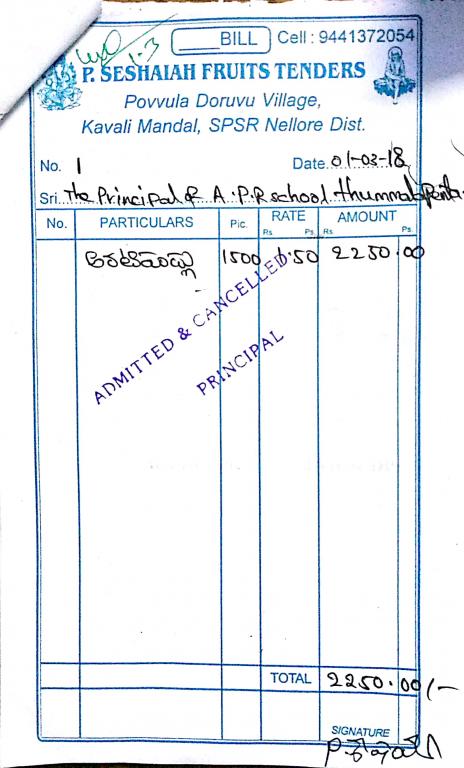 BILL Cell : 9441372054
1-3
P. SESHAIAH FRUITS TENDERS
Povvula Doruvu Village,
Kavali Mandal, SPSR Nellore Dist.
No. 1 Date. 01-03-18
Sri. The Principal of A.P.R school. thummalapenta.
No. PARTICULARS Pic. RATE AMOUNT
Rs Ps. Rs Ps.
అరటిపండ్లు 1500 1.50 2250.00
ADMITTED & CANCELLED
PRINCIPAL
TOTAL 2250.00/-
SIGNATURE